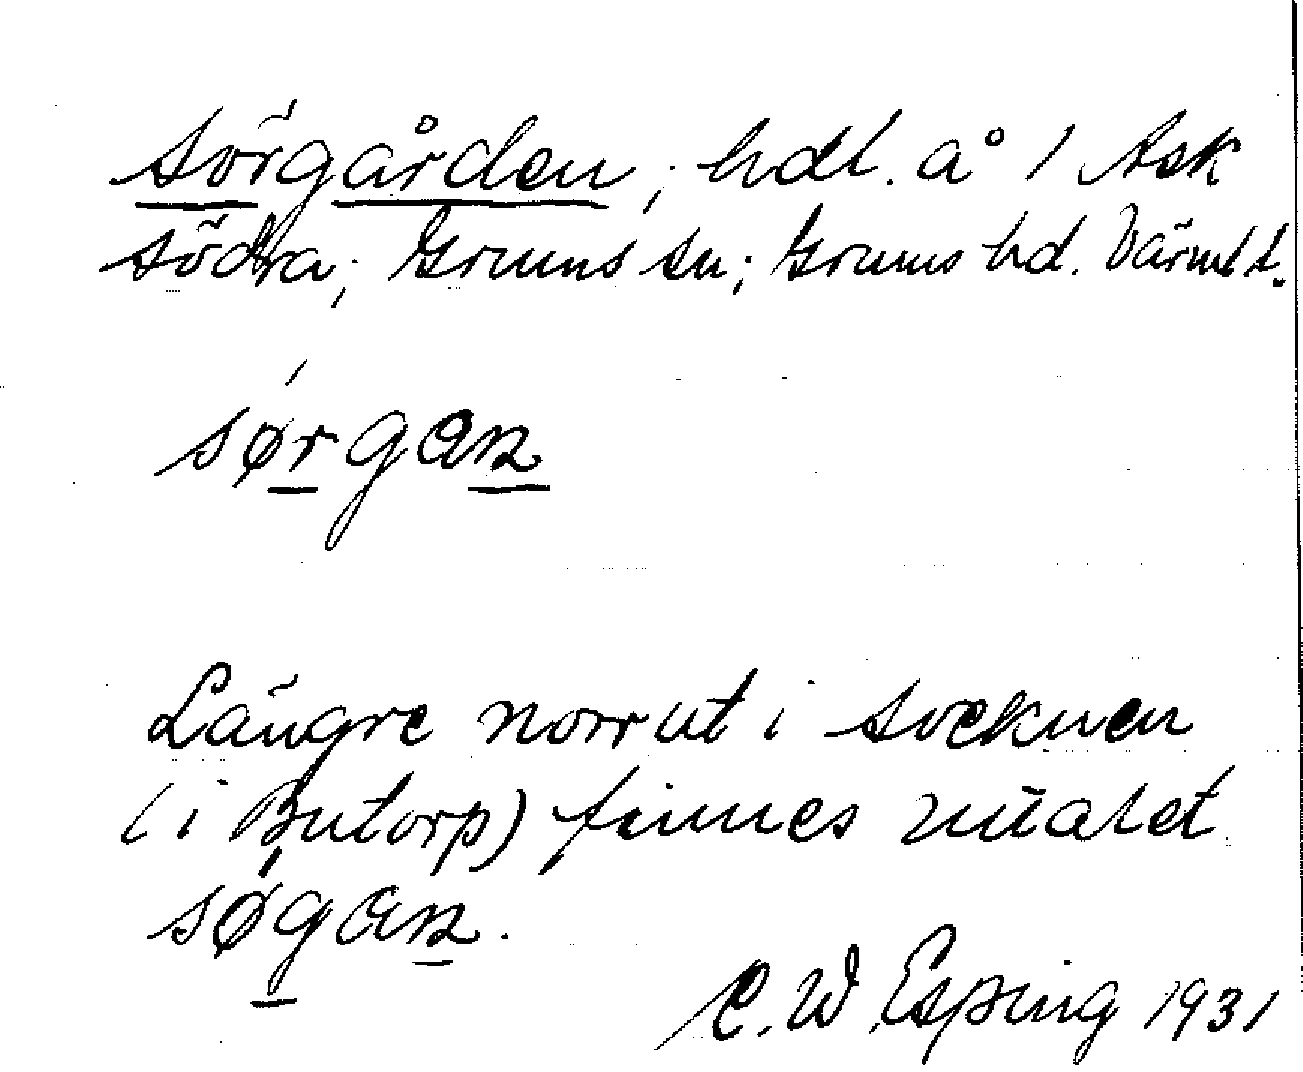 Sörgården; hdl. å 1 Ask
södra; Grums sn; Grums hd. Värml l.
sørgan
Längre norrut i socknen
(i Butorp) finnes uttalet
søgan.
C. W. Esping 1931